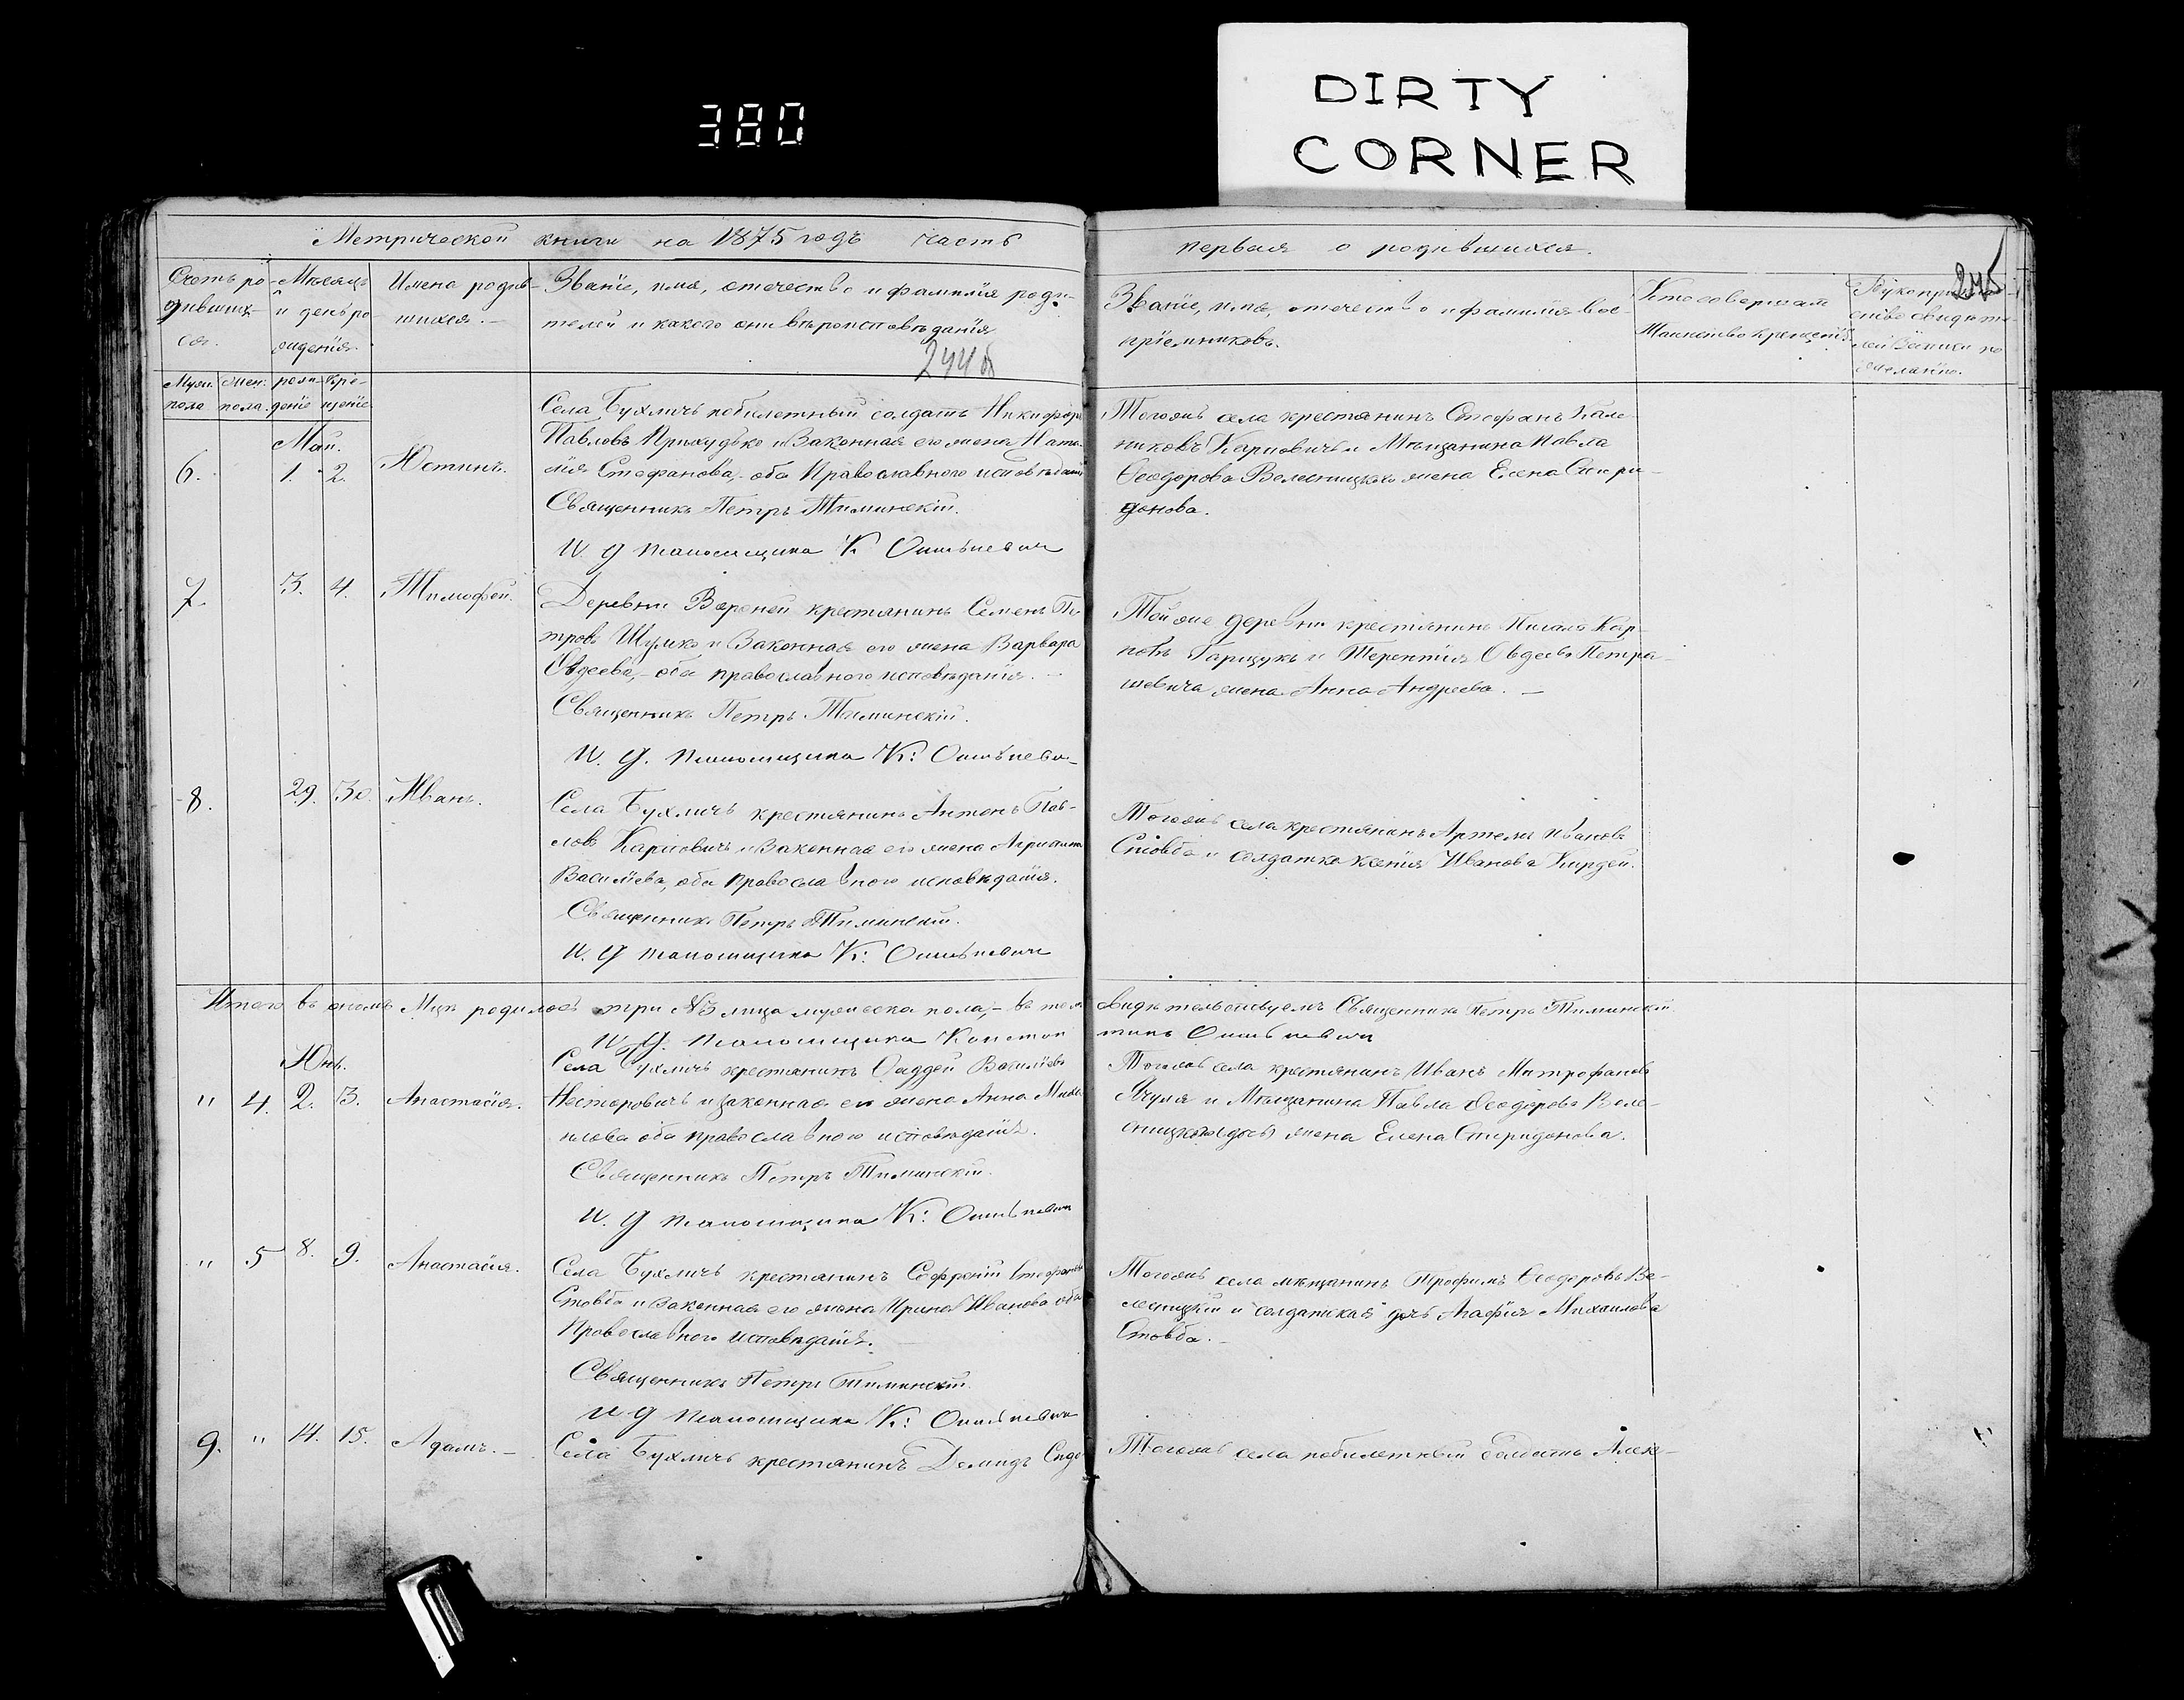 380
DIRTY
CORNER
Метрической книги на 1875 годъ часть
первая о родившихся.
245
Счетъ ро-
дивших-
ся.
Мѣсяцъ
и день ро-
жденія.
Имена родив-
шихся.
Званіе, имя, отечество и фамилія роди-
телей и какого они вѣроисповѣданія
244 об
Званіе, имя, отечество и фамилія вос-
пріемниковъ.
Кто совершал
Таинство крещенія
Рукоприклад-
ство свидѣте-
лей записи по
желанію.
Муж. пола
жен. пола.
рож-деніе
кре-щеніе
Май.
6. 1. 2. Юстинъ.
Села Бухличъ побилетный солдатъ Никифоръ
Павловъ Прихудько и Законная его жена Ната-
лія Стефанова, оба Православного исповѣданія
Священникъ Петръ Тиминскій.
И. д Псаломщика К.
Тогожъ села крестянинъ Стефанъ
Карповичъ и Мѣщанина Павла
Ѳеодорова Велесницкаго жена Елена Спири-
донова.
7. 3. 4. Тимофей.
Деревни крестянинъ Семенъ Пе-
тровъ и Законная его жена Варвара
Овдеева, оба православного исповѣданія.
Священникъ Петръ Тиминскій.
И. д. Псаломщика К:
Той же деревни крестянинъ Кар-
повъ Гарщукъ и Терентія Овдеева Петра-
шевича жена Анна Андреева.
8. 29. 30. Иванъ.
Села Бухличъ крестянинъ Антонъ Пав-
ловъ Карповичъ и Законная его жена
Васильева, оба православного исповѣданія.
Священникъ Петръ Тиминскій.
И. д Псаломщика К:
Тогожъ села крестянинъ Артемъ Ивановъ
Стовба и солдатка Ксенія Иванова Кирдей.
Итого въ ономъ М-цѣ родилось три №3 лица мужеска пола, въ томъ
свидѣтельствуемъ Священникъ Петръ Тиминскій
И. д. Псаломщика Констан
тинъ
Юнь.
" 4. 2. 3. Анастасія.
Села Бухличъ крестянинъ Фаддей Васильевъ
Несторовичъ и законная его жена Анна Миха-
илова оба православного исповѣданія.
Священникъ Петръ Тиминскій.
И. д Псаломщика К:
Тогожъ села крестянинъ Иванъ Митрофановъ
и Мѣщанина Павла Ѳеодорова Веле-
сницкого жена Елена Спиридонова.
" 5 8. 9. Анастасія.
Села Бухличъ крестянинъ Софроній Стефановъ
Стовба и Законная его жена Ирина Иванова оба
Православного исповѣданія.
Священникъ Петръ Тиминскій
И д Псаломщика К:
Тогожъ села мѣщанинъ Трофимъ Ѳеодоровъ Ве-
лесницкій и солдатская дочь Агафія Михаилова
Стовба.
9. " 14. 15. Адамъ.
Села Бухличъ крестянинъ Демидъ Сидо
Тогожъ села побилетный солдатъ Алек-